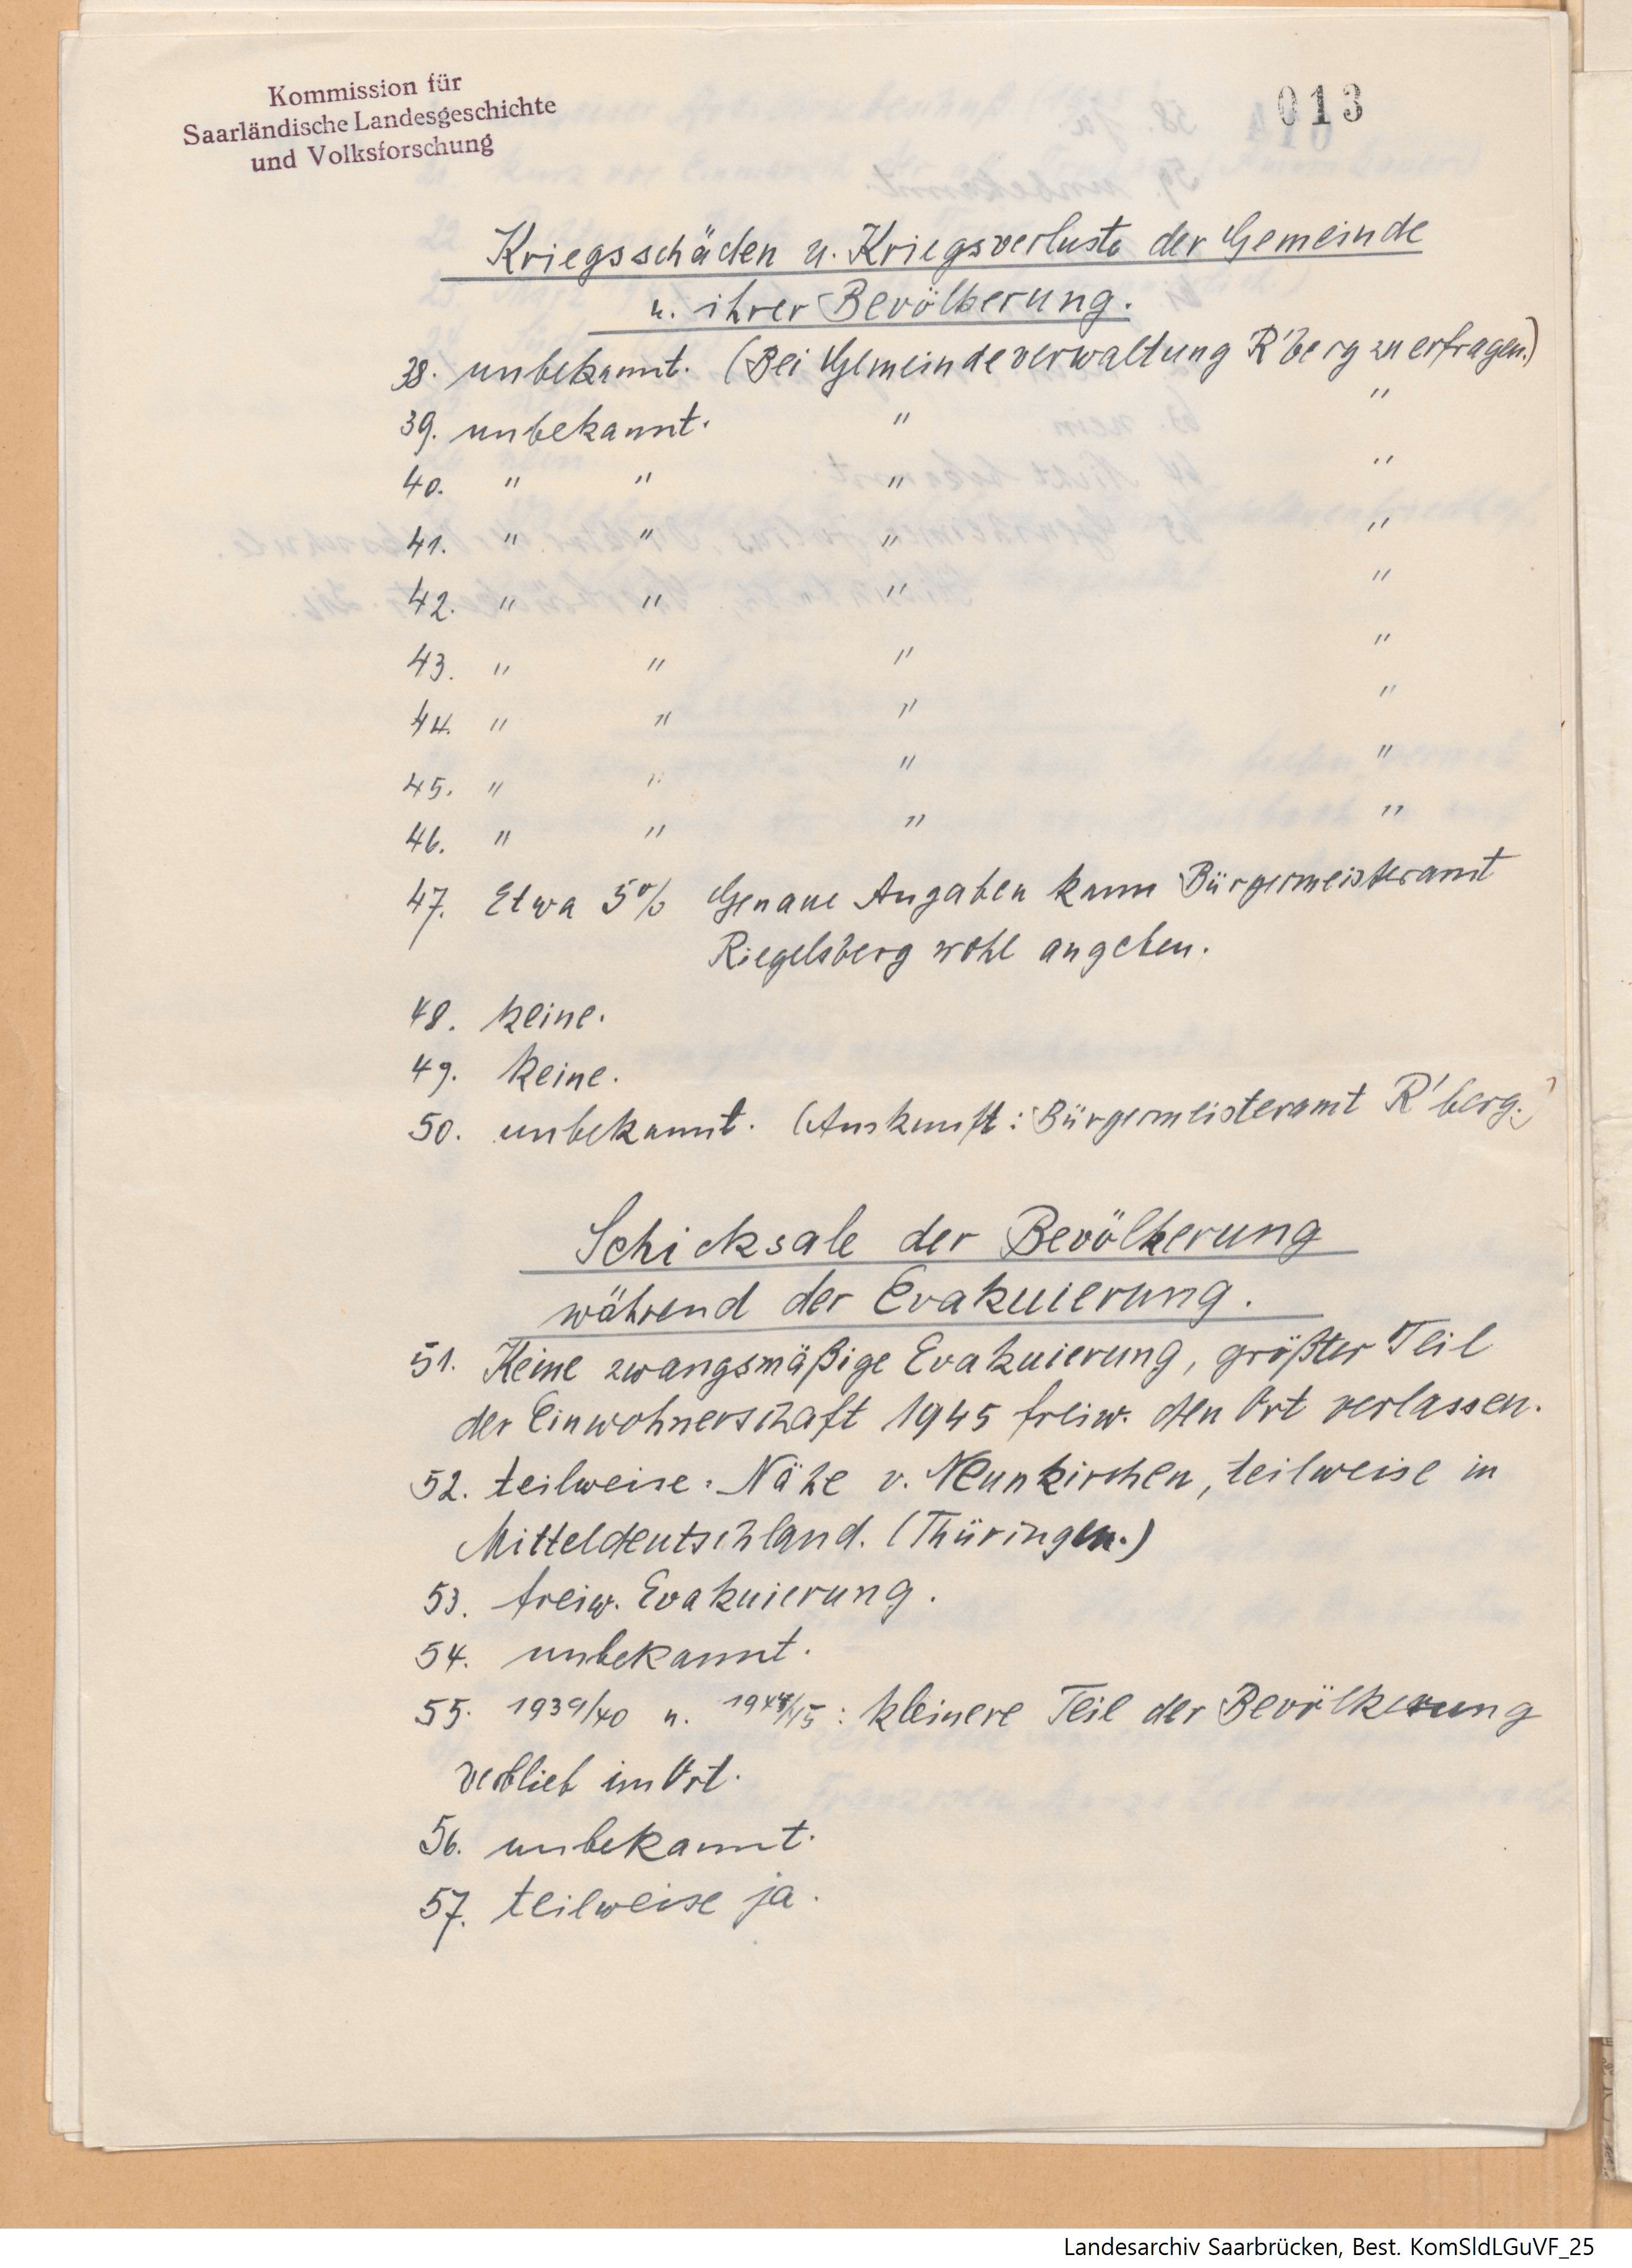 Kommission für
Saarländische Landesgeschichte
und Volksforschung
013
Kriegsschäden u. Kriegsverluste der Gemeinde
u. ihrer Bevölkerung.
38. unbekannt. (Bei Gemeindeverwaltung R'berg zu erfragen.)
39. unbekannt. " "
40. " " " "
41. " " " "
42. " " " "
43. " " " "
44. " " " "
45. " " " "
46. " " " "
47. Etwa 5% Genaue Angaben kann Bürgermeisteramt
Riegelsberg wohl angeben.
48. keine.
49. keine.
50. unbekannt. (Auskunft: Bürgermeisteramt R'berg.)
Schicksale der Bevölkerung
während der Evakuierung.
51. Keine zwangsmäßige Evakuierung, größter Teil
der Einwohnerschaft 1945 freiw. den Ort verlassen.
52. teilweise: Nähe v. Neunkirchen, teilweise in
Mitteldeutschland. (Thüringen.)
53. freiw. Evakuierung.
54. unbekannt.
55. 1939/40 u. 1944/45: kleinere Teil der Bevölkerung
verblieb im Ort.
56. unbekannt.
57. teilweise ja.
Landesarchiv Saarbrücken, Best. KomSldLGuVF_25